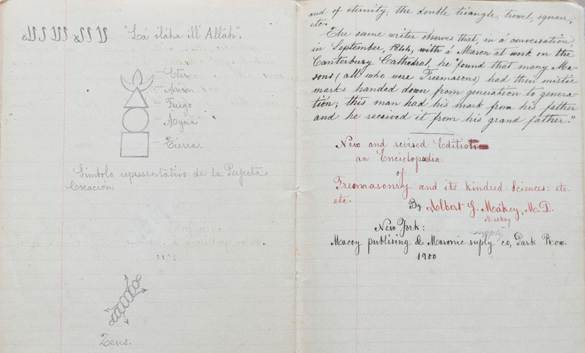 "La ilaha ill' Allah".
Eter
Fuego
Agua
Tierra
Símbolo representativo de la Perfecta
Creación
Zeus.
and, of eternity; the double triangle, trowel, square,
etc.
The same writer shewes that, in a conversation,
in September, 1844, with a Mason at work on the
Canterbury Cathedral, he "found that many Ma-
sons (all who were Freemasons) had their mistic
marks handed down from generation to genera-
tion; this man had his mark from his father
and he received it from his grand father."
New and revised Edition
an Encyclopædia
Freemasonry and its kindred Sciences: etc.
etc.
By Albert G. Makey, M.D.
New York:
Macoy publising & Masonic suply co, Park Row.
1900